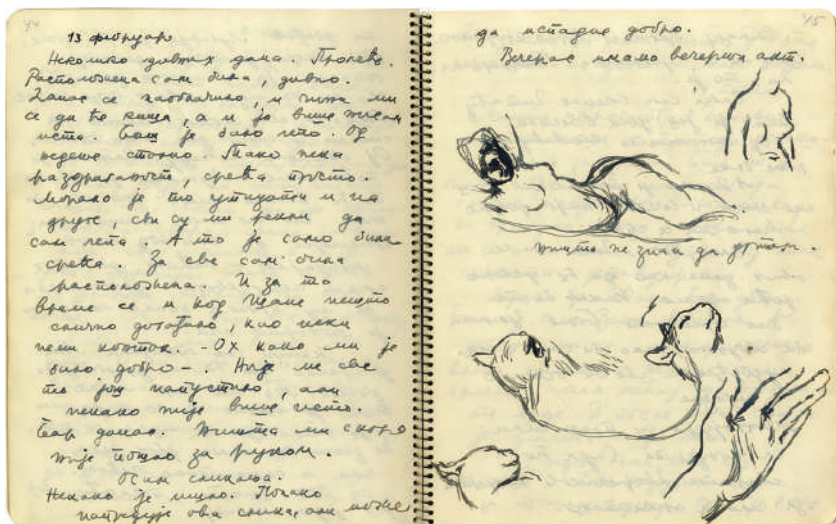 44
13 фебруар
Неколико дивних дана. Пролеће.
Расположена сам била, дивно.
Данас се наоблачило, и чини ми
се да ће киша, а и ја више нисам
иста. Баш је било лепо. Од
недеље стално. Тако нека
раздраганост, срећа просто.
Морало је то утицати и на
друге, сви су ми рекли да
сам лепа. А то је само била
срећа. За све сам била
расположена. И за то
време се и код нешто
слично догађало, као неки
неми контак. - Ох како ми је
било добро -. Није ме све
то још напустило, али
некако није више исто.
Бар данас. Ништа ми скоро
није пошло за руком.
Осим сликања.
Некако је ишло. Полако
напредује ова слика, али може
45
да испадне добро.
Вечерас имамо вечерњи акт.
Ништа не зна да